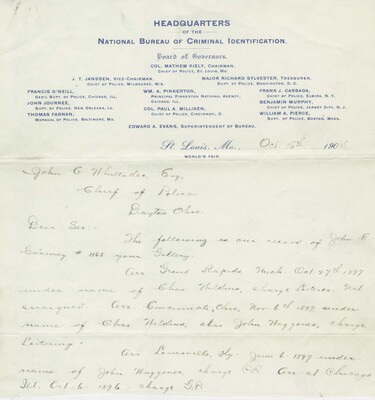 HEADQUARTERS
OF THE
NATIONAL BUREAU OF CRIMINAL IDENTIFICATION.
Board of Governors.
COL. MATHEW KIELY, CHAIRMAN,
CHIEF OF POLICE, ST. LOUIS, MO.
J. T. JANSSEN, VICE-CHAIRMAN,
CHIEF OF POLICE, MILWAUKEE, WIS.
MAJOR RICHARD SYLVESTER, TREASURER,
SUPT. OF POLICE, WASHINGTON, D. C.
FRANCIS O'NEILL,
GEN'L SUPT. OF POLICE, CHICAGO, ILL.
JOHN JOURNEE,
SUPT. OF POLICE, NEW ORLEANS, LA.
THOMAS FARNAN,
MARSHAL OF POLICE, BALTIMORE, MD.
WM. A. PINKERTON,
PRINCIPAL PINKERTON NATIONAL AGENCY,
CHICAGO, ILL.
COL. PAUL A. MILLIKEN,
CHIEF OF POLICE, CINCINNATI, O.
FRANK J. CASSADA,
CHIEF OF POLICE, ELMIRA, N. Y.
BENJAMIN MURPHY,
CHIEF OF POLICE, JERSEY CITY, N. J.
WILLIAM A. PIERCE,
SUPT. OF POLICE, BOSTON, MASS.
EDWARD A. EVANS, SUPERINTENDENT OF BUREAU.
St. Louis, Mo., Oct 15th 190
WORLD'S FAIR.
John C Whitaker Esq.
Chief of Police
Dayton Ohio
Dear Sir:-
The following is our record of John F
# 1165 your Gallery.
Arr Grand Rapids, Mich Oct 27th 1897
under name of Chas Watkins, charge Larceny. Not
assigned. Arr Cincinnati, Ohio, Nov 6th 1897 under
name of Chas Watkins, alias John Waggoner, charge
Loitering.
Arr Louisville, Ky. June 6 1897 under
name of John Waggoner, charge P.P. Arr at Chicago
Ill. Oct. 6 1896 charge G.P.